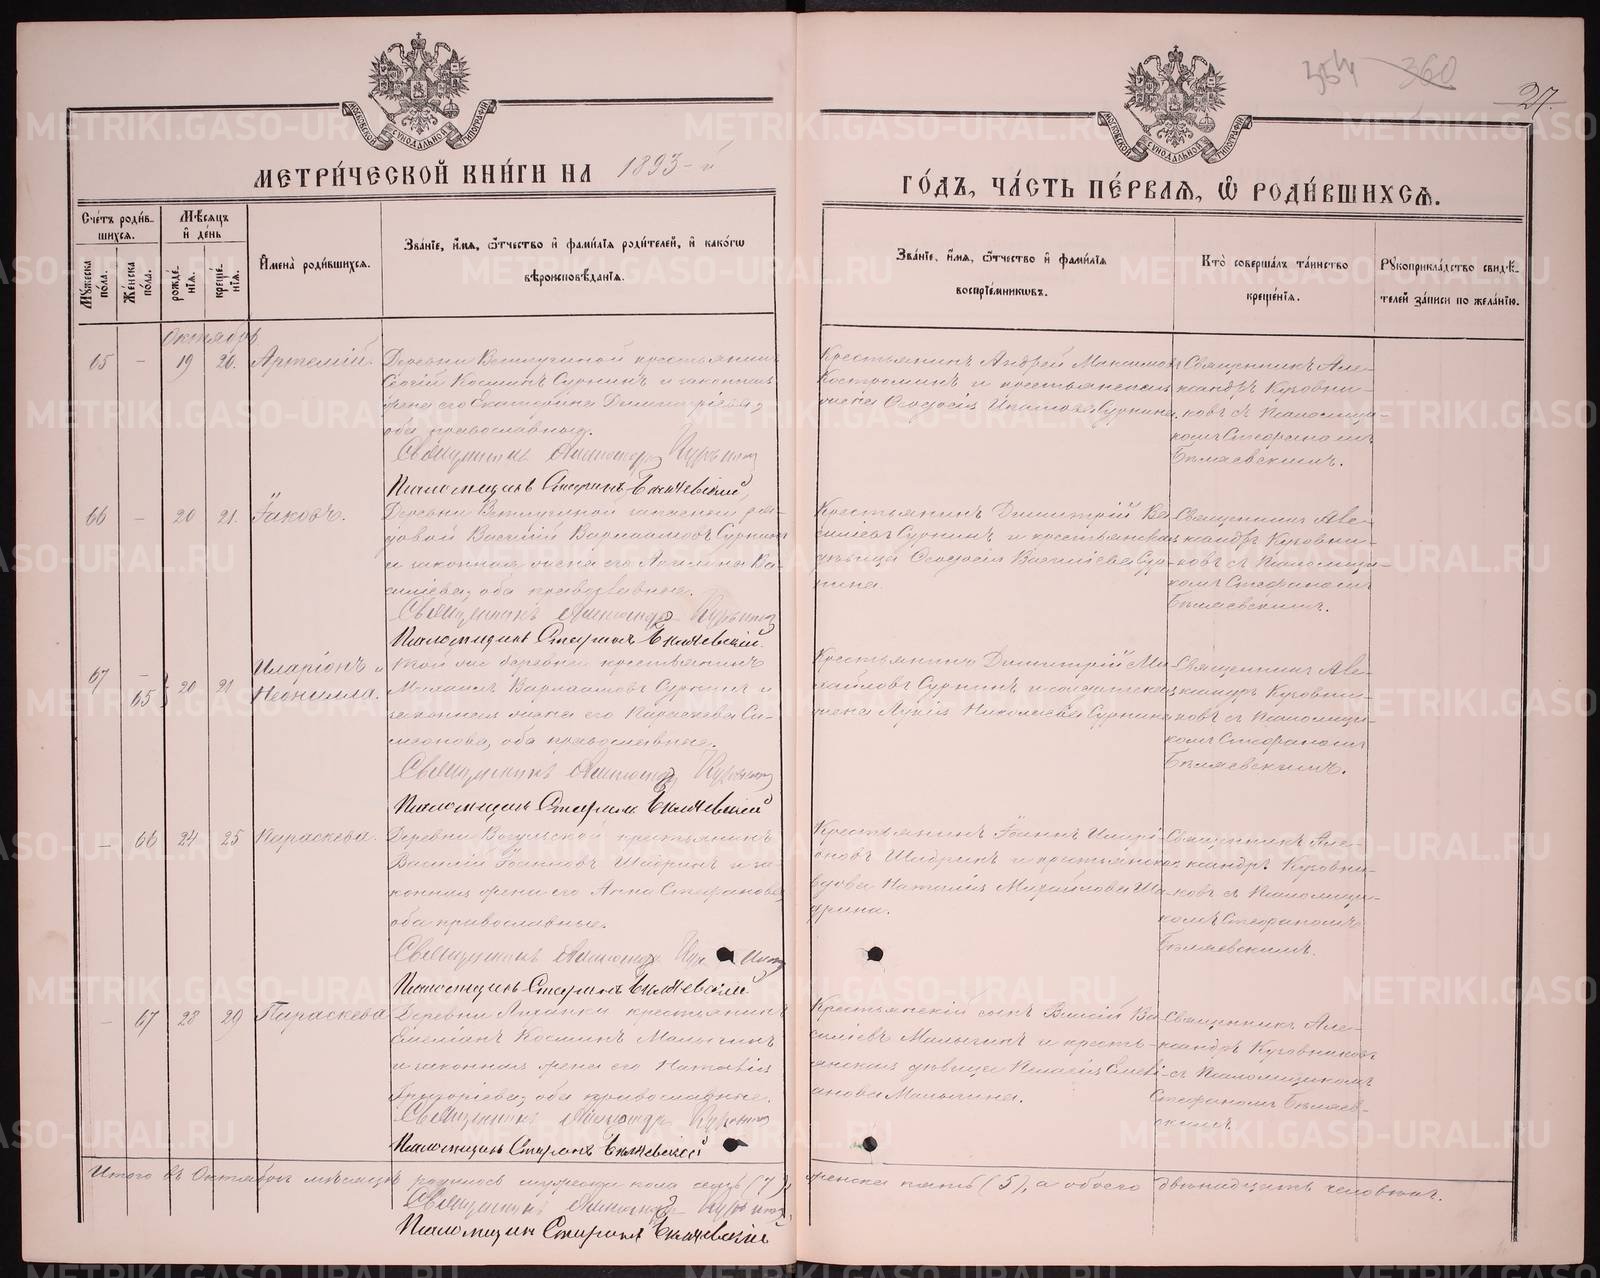 354 360
27.
МЕТРИ́ЧЕСКОЙ КНИ́ГИ НА 1893-й
ГО́ДЪ, ЧА́СТЬ ПЕ́РВАЯ, Ѡ РОДИ́ВШИХСЯ.
Сче́тъ роди́вшихся.
Му́жеска по́ла.
Же́нска по́ла.
Мѣ́сяцъ и де́нь
рожде́нія.
креще́нія.
И҆мена̀ роди́вшихся.
Зва́ніе, и҆́мя, ѻ҆́тчество и҆ фами́лія роди́телей, и҆ како́гѡ
вѣроисповѣ́данія.
Зва́ніе, и҆́мя, ѻ҆́тчество и҆ фами́лія
воспріе́мникѡвъ.
Кто̀ соверша́лъ та́инство
креще́нія.
Рꙋкоприкла́дство свидѣ́-
телей за́писи по жела́нію.
Октябрь
65 - 19 20. Артемій.
Деревни Ветлугиной крестьянинъ
Сергій Косминъ Суринъ и законная
жена его Екатерина Димитріева,
оба православные.
Священникъ Александръ Куровниковъ
Псаломщикъ Стефанъ Бѣляевскій
Крестьянинъ Андрей Максимовъ
Костроминъ и крестьянская
Ѳеодосія Сурнина.
Священникъ Але-
ксандръ Куровни-
ковъ съ Псаломщи-
комъ Стефаномъ
Бѣляевскимъ.
66 - 20 21. Іаковъ.
Деревни Ветлугиной запасной ря-
довой Василій Варлаамовъ Сурнинъ
и законная жена его Ва-
силіева, оба православные.
Священникъ Александръ Куровниковъ
Псаломщикъ Стефанъ Бѣляевскій.
Крестьянинъ Димитрій Ва-
силіевъ Сурнинъ и крестьянская
дѣвица Ѳеодосія Василіева Сур-
нина.
Священникъ Але-
ксандръ Куровни-
ковъ съ Псаломщи-
комъ Стефаномъ
Бѣляевскимъ.
67 - 65 20 21 Иларіонъ и
Неонилла.
Той же деревни крестьянинъ
Михаилъ Варлаамовъ Сурнинъ и
законная жена его Параскева Си-
меонова, оба православные.
Священникъ Александръ Куровниковъ
Псаломщикъ Стефанъ Бѣляевскій
Крестьянинъ Димитрій Ми-
хайловъ Сурнинъ и солдатская
жена Николаева Сурнина
Священникъ Але-
ксандръ Куровни-
ковъ съ Псаломщи-
комъ Стефаномъ
Бѣляевскимъ.
- 66 24 25 Параскева.
Деревни Вогульской крестьянинъ
Василій Іоанновъ Шадринъ и за-
конная жена его Анна Стефанова,
оба православные.
Священникъ Александръ Куровниковъ
Псаломщикъ Стефанъ Бѣляевскій.
Крестьянинъ Іоаннъ Илларі-
оновъ Шадринъ и крестьянская
вдова Наталія Михайлова Ша-
дрина.
Священникъ Але-
ксандръ Куровни-
ковъ съ Псаломщи-
комъ Стефаномъ
Бѣляевскимъ.
- 67 28 29 Параскева
Деревни крестьянинъ
Емеліанъ Косминъ Малыгинъ
и законная жена его Наталія
Григоріева, оба православные.
Священникъ Александръ Куровниковъ
Псаломщикъ Стефанъ Бѣляевскій
Крестьянскій сынъ Ва-
силіевъ Малыгинъ и кресть-
янская дѣвица Пелагія Емелі-
анова Малыгина.
Священникъ Але-
ксандръ Куровниковъ
съ Псаломщикомъ
Стефаномъ Бѣляев-
скимъ
Итого въ Октябрѣ мѣсяцѣ родилось мужеска пола семь (7), женска пять (5), а обоего двѣнадцать человѣкъ.
Священникъ Александръ Куровниковъ
Псаломщикъ Стефанъ Бѣляевскій